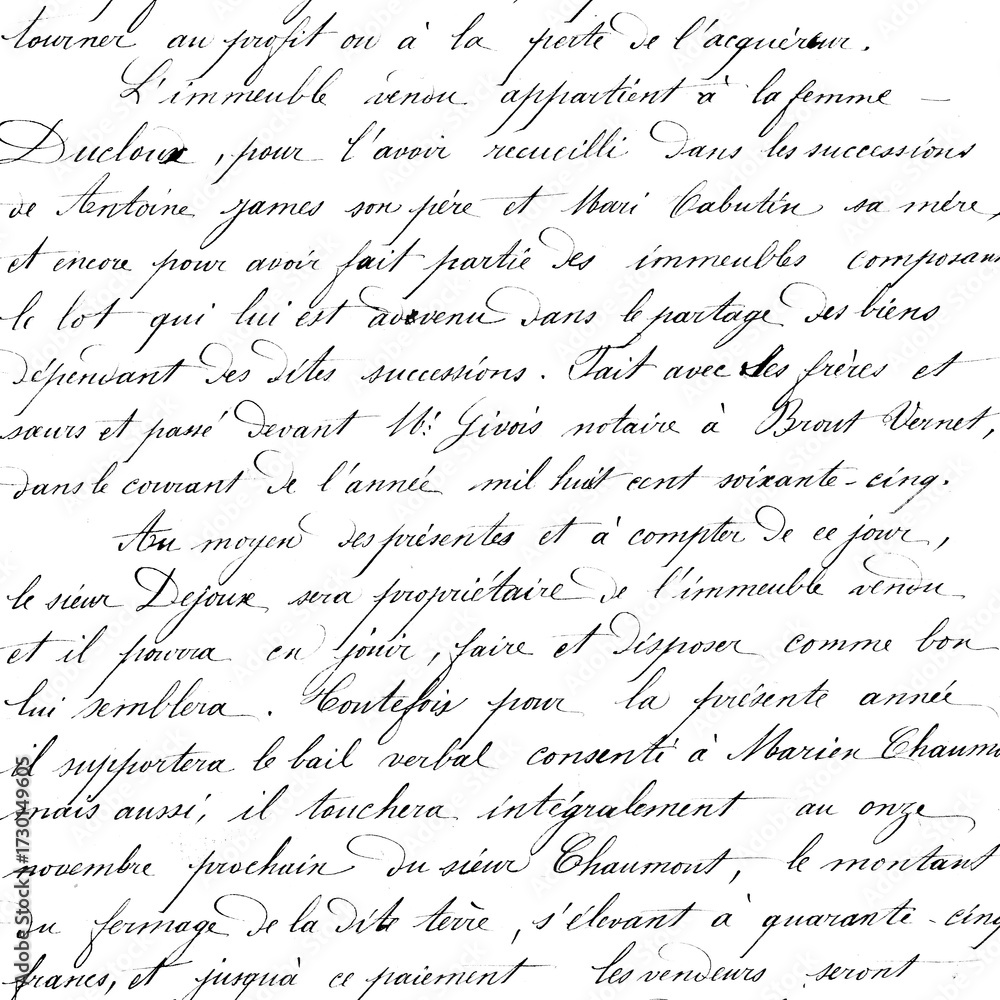 tourner au profit ou à la perte de l'acquéreur.
L'immeuble vendu appartient à la femme —
Ducloux, pour l'avoir recueilli dans les successions
de Antoine James son père et Mari Cabutin sa mère,
et encore pour avoir fait partie des immeubles composant
le lot qui lui est advenu dans le partage des biens
dépendant des dites successions. Fait avec ses frères et
sœurs et passé devant Me Givois notaire à Brout Vernet,
dans le courant de l'année mil huit cent soixante-cinq.
Au moyen des présentes et à compter de ce jour,
le sieur Dejoux sera propriétaire de l'immeuble vendu
et il pourra en jouir, faire et disposer comme bon
lui semblera. Toutefois pour la présente année
il supportera le bail verbal consenti à Marien Chaumo
mais aussi, il touchera intégralement au onze
novembre prochain du sieur Chaumont, le montant
du fermage de la dite terre, s'élevant à quarante-cinq
francs, et jusqu'à ce paiement les vendeurs seront
Adobe Stock | #1730149605